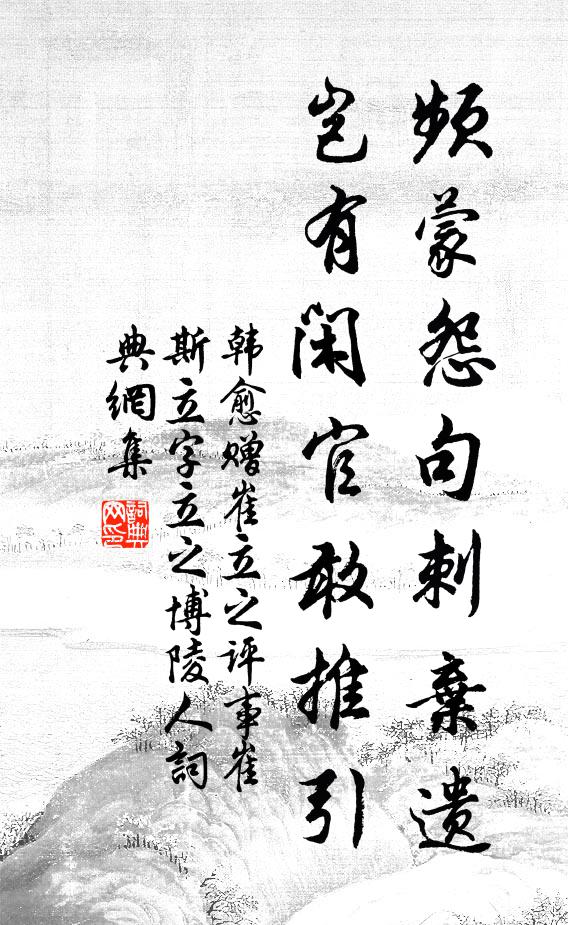 頻蒙怨句刺棄遗
岂有閑官敢推引
韩愈赠崔立之评事崔
斯立字立之博陵人詞
典網集
詞典
网印